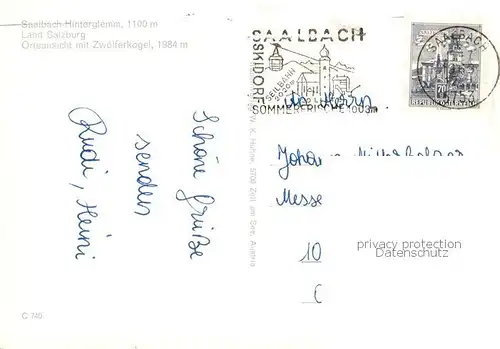 Saalbach-Hinterglemm, 1100 m
Land Salzburg
Ortsansicht mit Zwölferkogel, 1984 m
SAALBACH
SKIDORF
SEILBAHN
2020m
SOMMERFRISCHE 1003m
SAALBACH
70
REPUBLIK ÖSTERREICH
An Herrn
Messe
10
Schöne Grüße
senden
Rudi, Heini
5700 Zell am See, Austria
privacy protection
Datenschutz
C 740